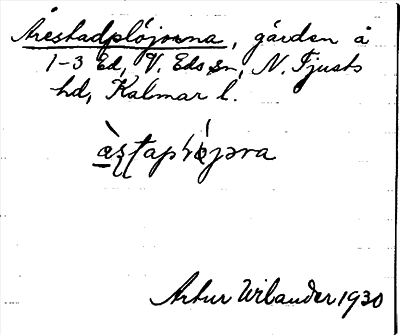 Årestadplöjorna, gården å
1-3 Ed, V. Eds sn, N. Tjusts
hd, Kalmar l.
Artur Wilander 1930